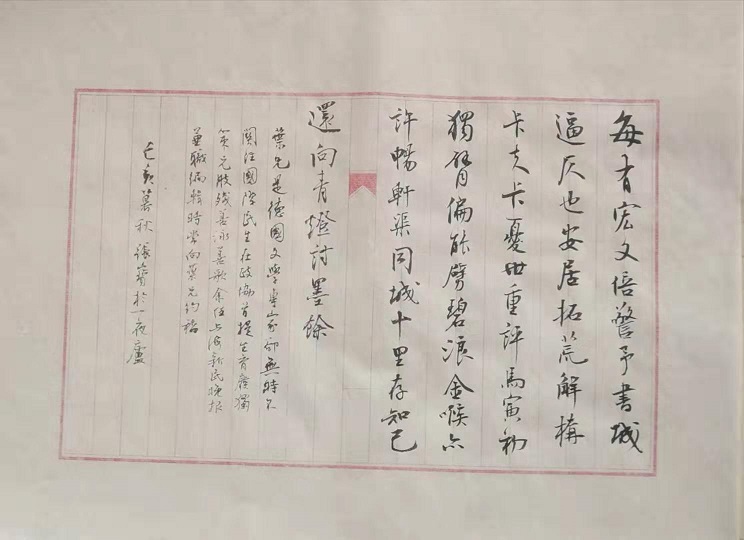 每有宏文倍警予書城
逼仄也安居拓荒解構
卡夫卡憂世重評馬寅初
獨臂偏能劈碧浪金喉亦
許暢軒渠同城十里存知己
還向青燈討墨餘
葉先是德國文學專家卻無時不
關注國計民生在政協首提生育廢獨
策尤肢殘善泳善歌余任上海新民晚報
兼職編輯時常向葉先約稿
己亥暮秋 張 於一夜廬